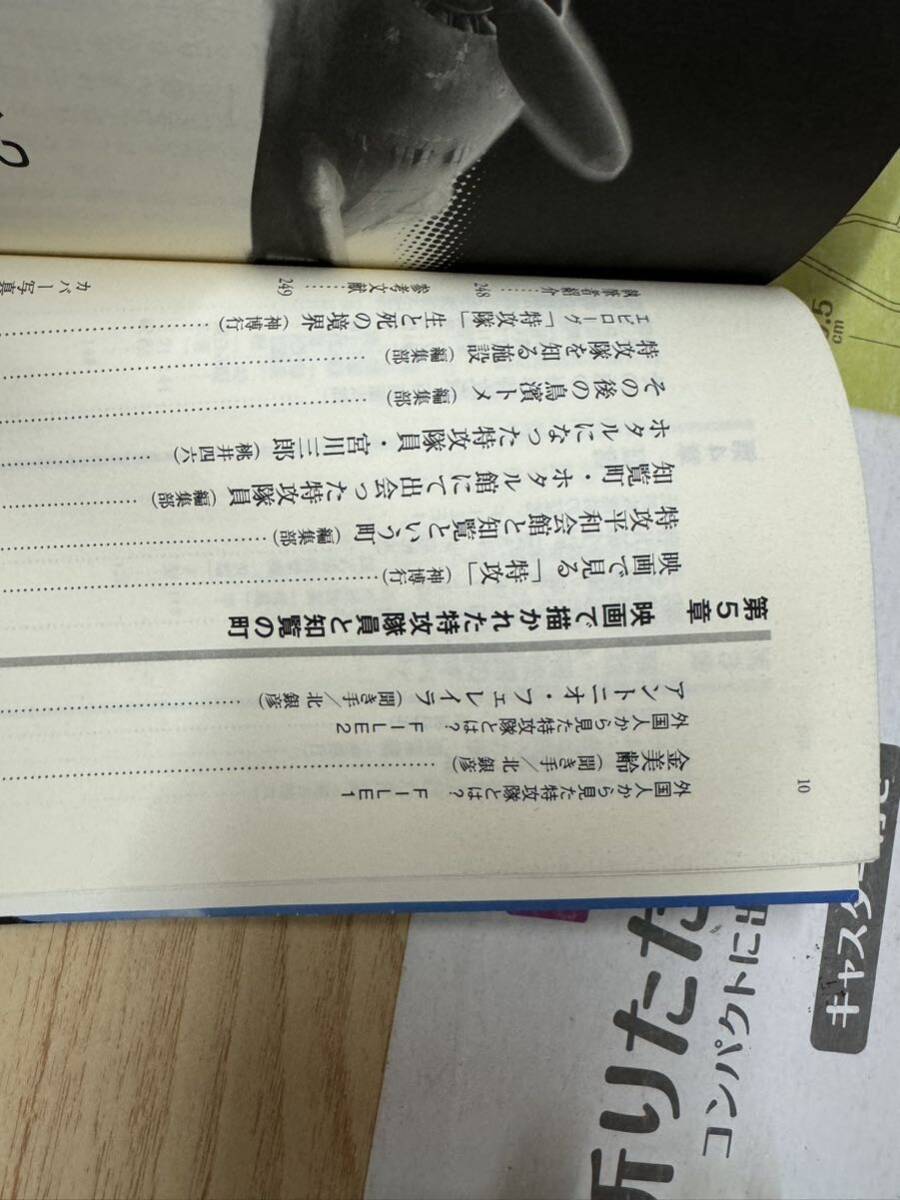 10
外国人から見た特攻隊とは? FILE1
金美齢(聞き手/北 銀彦)
外国人から見た特攻隊とは? FILE2
アントニオ・フェレイラ(聞き手/北 銀彦)
第5章 映画で描かれた特攻隊員と知覧の町
映画で見る「特攻」(神 博行)
特攻平和会館と知覧という町(編集部)
知覧町・ホタル館にて出会った特攻隊員(編集部)
ホタルになった特攻隊員・宮川三郎(桃井四六)
その後の鳥濱トメ(編集部)
特攻隊を知る施設(編集部)
エピローグ「特攻隊」生と死の境界(神 博行)
執筆者紹介 248
参考文献 249
カバー写真
2
5
cm
折りたた
コンパクトに
キャスター